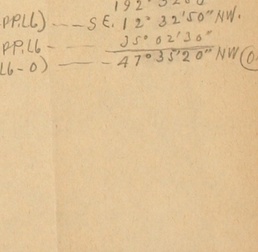 PP.L6) --- S.E. 12° 32' 50" NW.
PP.L6 - 35° 02' 30"
L6-0) --- 47° 35' 20" NW